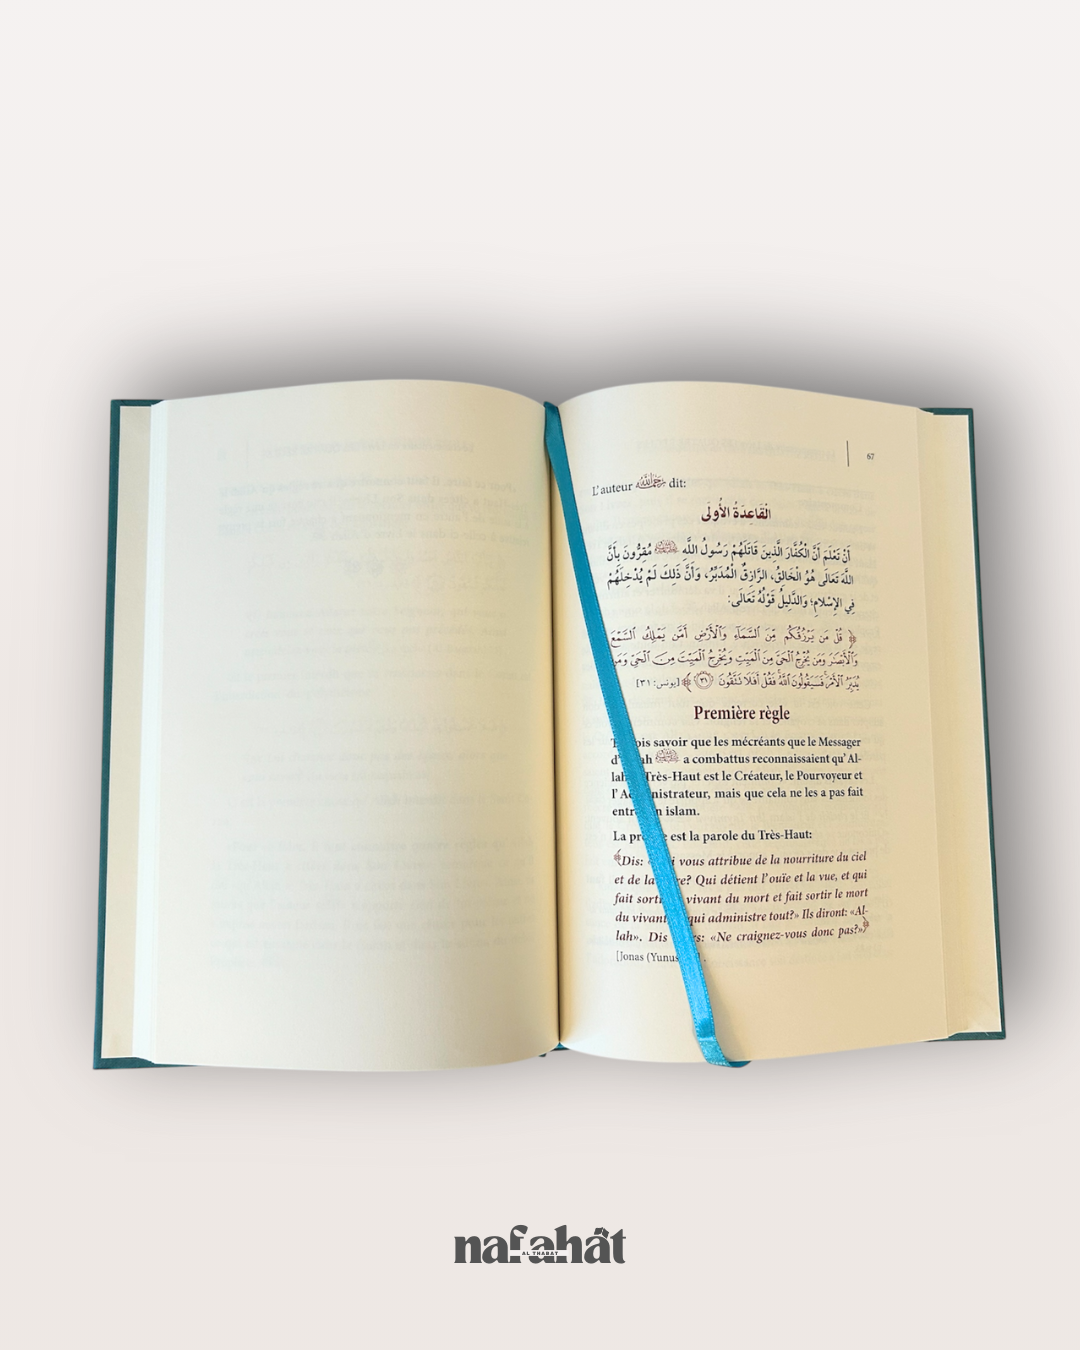 67
L'auteur رحمه الله dit:
الْقَاعِدَةُ الأُولَى
أَنْ تَعْلَمَ أَنَّ الْكُفَّارَ الَّذِينَ قَاتَلَهُمْ رَسُولُ اللَّهِ ﷺ مُقِرُّونَ بِأَنَّ
اللَّهَ تَعَالَى هُوَ الْخَالِقُ، الرَّازِقُ الْمُدَبِّرُ، وَأَنَّ ذَلِكَ لَمْ يُدْخِلْهُمْ
فِي الإِسْلَامِ؛ وَالدَّلِيلُ قَوْلُهُ تَعَالَى:
﴿ قُلْ مَن يَرْزُقُكُم مِّنَ ٱلسَّمَآءِ وَٱلْأَرْضِ أَمَّن يَمْلِكُ ٱلسَّمْعَ
وَٱلْأَبْصَٰرَ وَمَن يُخْرِجُ ٱلْحَىَّ مِنَ ٱلْمَيِّتِ وَيُخْرِجُ ٱلْمَيِّتَ مِنَ ٱلْحَىِّ وَمَن
يُدَبِّرُ ٱلْأَمْرَ ۚ فَسَيَقُولُونَ ٱللَّهُ ۚ فَقُلْ أَفَلَا تَتَّقُونَ ٣١ ﴾ [يونس: ٣١]
Première règle
ois savoir que les mécréants que le Messager
ﷺ a combattus reconnaissaient qu'Al-
lah Très-Haut est le Créateur, le Pourvoyeur et
l'A nistrateur, mais que cela ne les a pas fait
entr n islam.
La pr e est la parole du Très-Haut:
﴾Dis: i vous attribue de la nourriture du ciel
et de la re? Qui détient l'ouïe et la vue, et qui
fait sort vivant du mort et fait sortir le mort
du vivant, qui administre tout?» Ils diront: «Al-
lah». Dis rs: «Ne craignez-vous donc pas?»﴿
[Jonas (Yunus
nafahât
AL THABAT